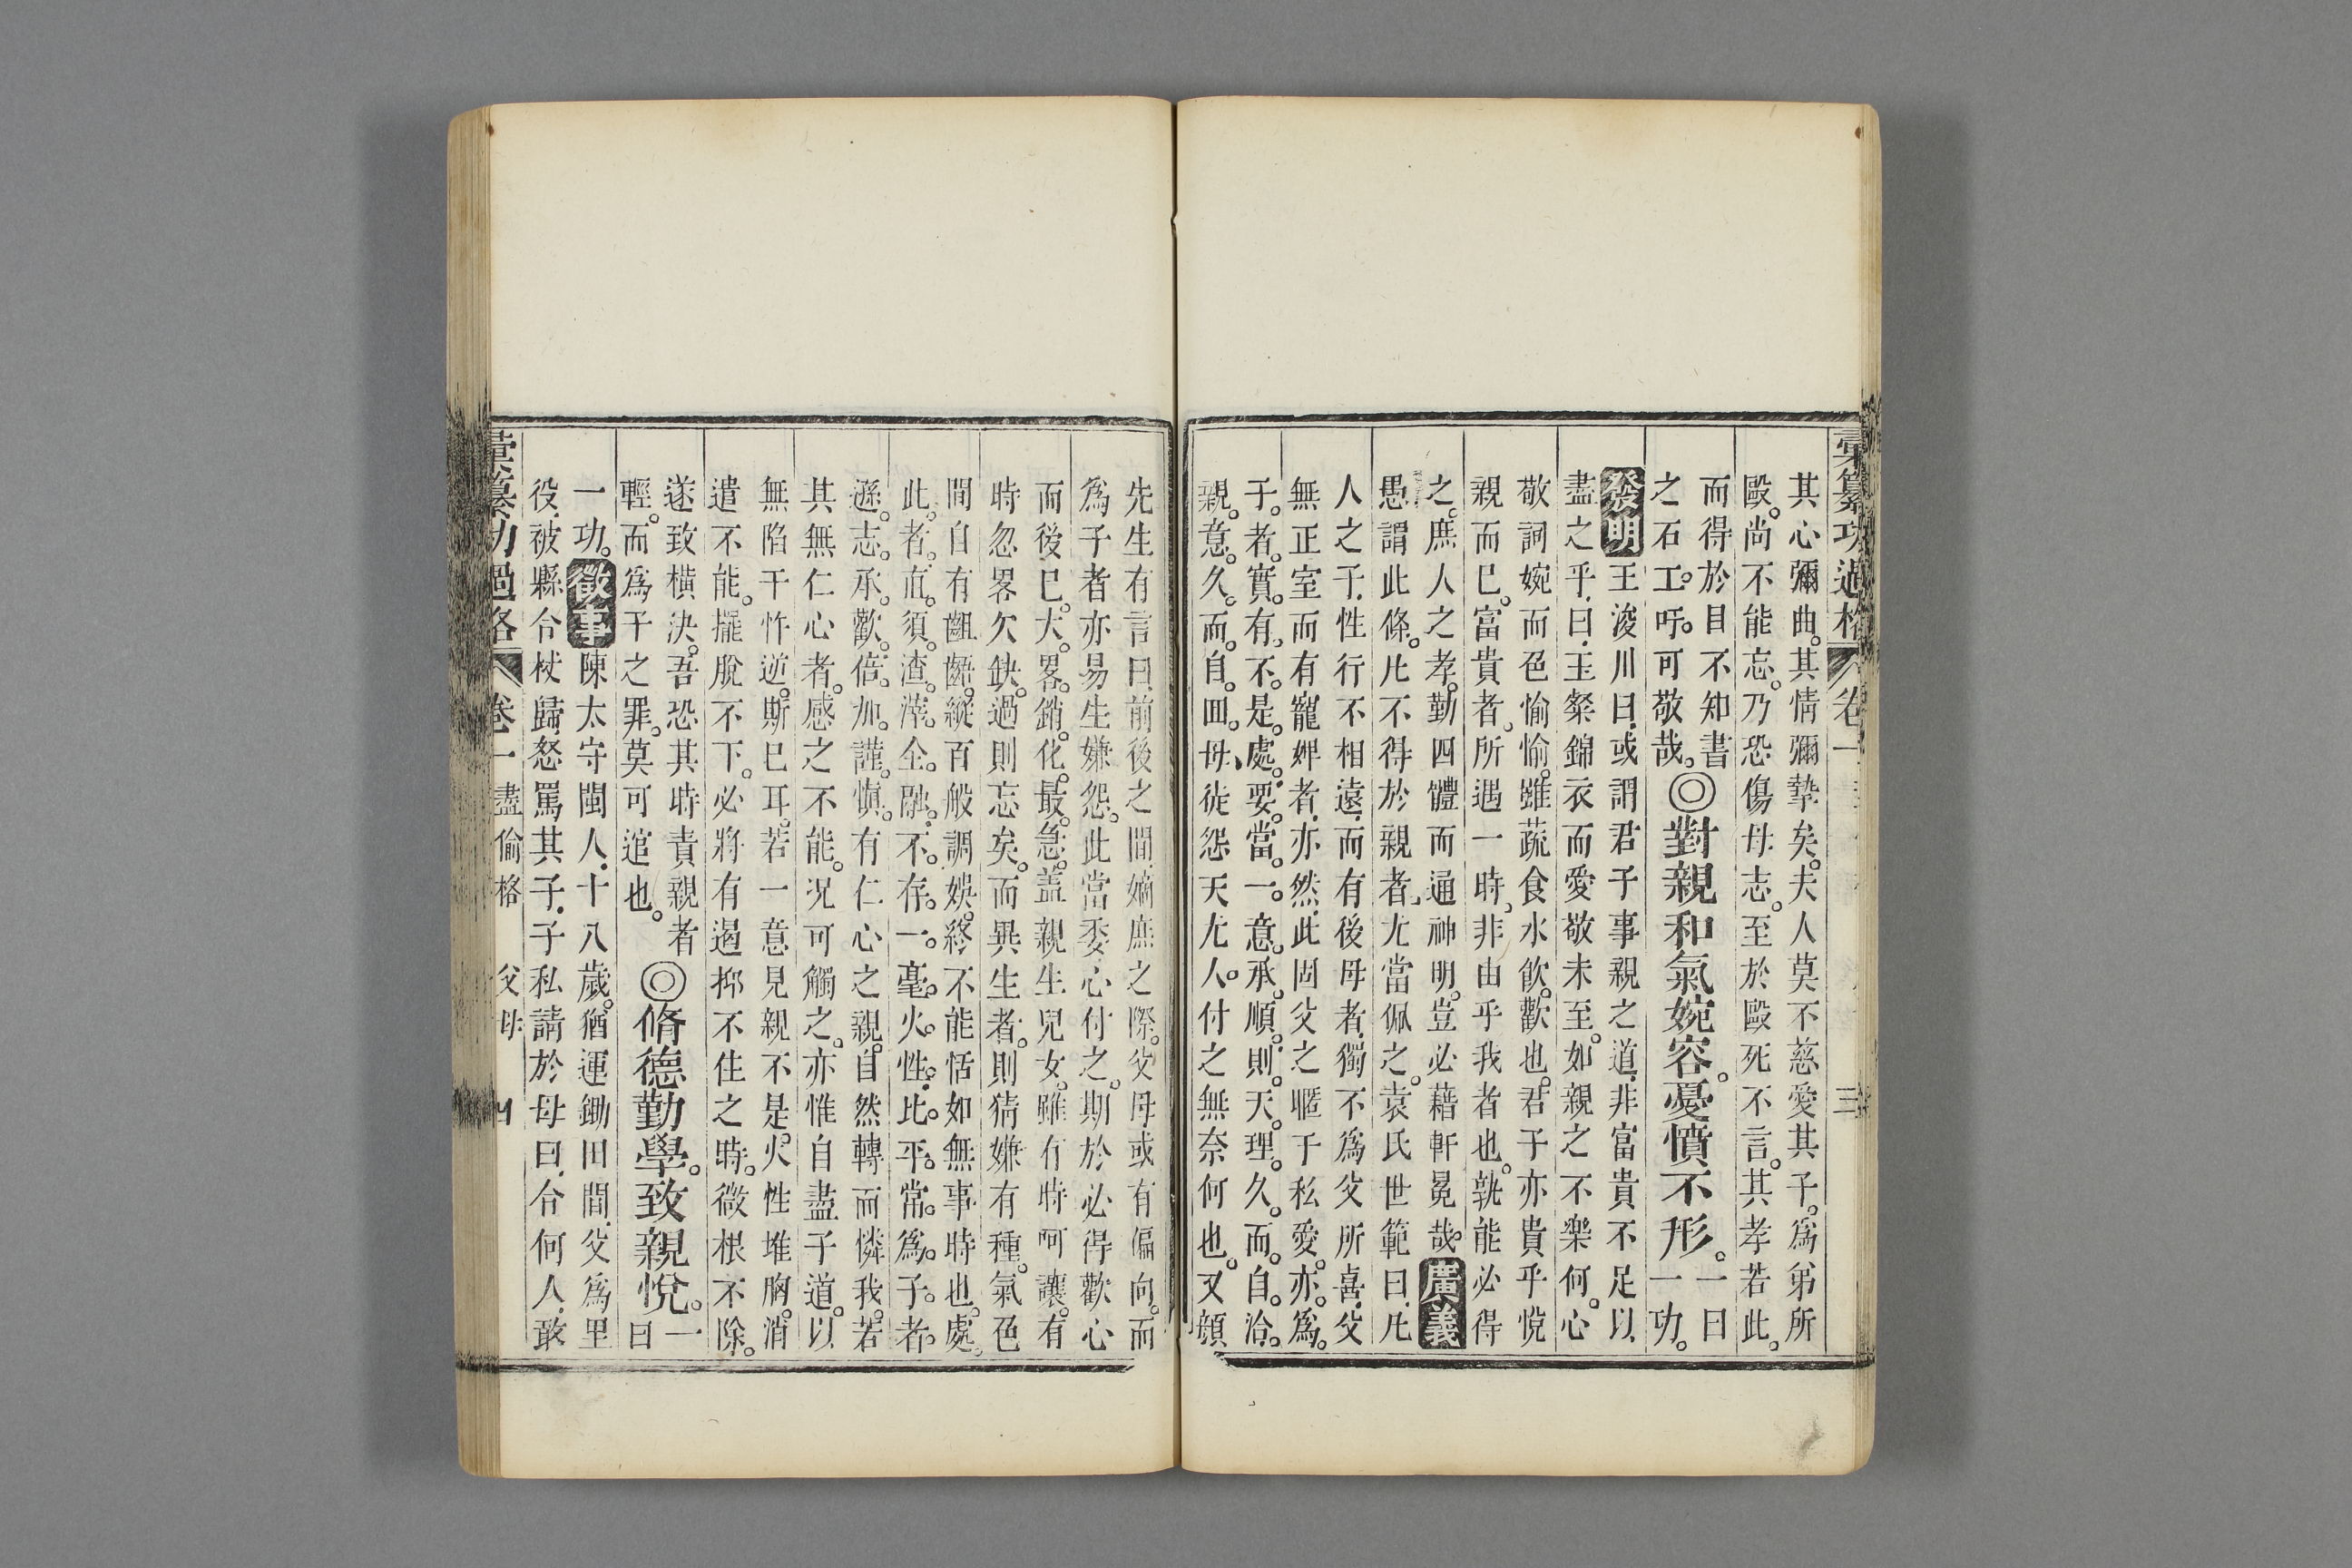 彙纂功過格 卷一 三
其心彌曲。其情彌摯矣。夫人莫不慈愛其子。爲弟所
毆。尚不能忘。乃恐傷母志。至於毆死不言。其孝若此。
而得於目不知書
之石工。吁。可敬哉。◎對親和氣婉容。憂憤不形。一曰
一功。
發明王浚川曰。或謂君子事親之道。非富貴不足以
盡之乎。曰。玉粲錦衣而愛敬未至。如親之不樂何。心
敬詞婉而色愉愉。雖蔬食水飲。歡也。君子亦貴乎悅
親而巳。富貴者。所遇一時。非由乎我者也。孰能必得
之。庶人之孝。勤四體而通神明。豈必藉軒冕哉。廣義
愚謂此條。凡不得於親者。尤當佩之。袁氏世範曰。凡
人之子。性行不相遠。而有後母者。獨不爲父所喜。父
無正室而有寵婢者。亦然。此固父之暱于私愛。亦。爲。
子。者。實。有。不。是。處。要。當。一。意。承。順。則。天。理。久。而。自。洽。
親。意。久。而。自。囬。母徒怨天尤人。付之無奈何也。又顔
先生有言曰。前後之間。嫡庶之際。父母或有偏向。而
爲子者亦易生嫌怨。此當委心付之。期於必得歡心
而後巳。大。畧。銷。化。最。急。盖親生兒女。雖有時呵讓。有
時忽畧欠缺。過則忘矣。而異生者。則猜嫌有種。氣色
間自有齟齬。縱百般調娛。終不能恬如無事時也。處。
此。者。直。須。渣。滓。全。融。不。存。一。毫。火。性。比。平。常。爲。子。者。
遜。志。承。歡。倍。加。謹。愼。有仁心之親。自然轉而憐我。若
其無仁心者。感之不能。况可觸之。亦惟自盡子道。以
無陷于忤逆。斯巳耳。若一意見親不是。火性堆胸。消
遣不能。擺脫不下。必將有遏抑不住之時。微根不除。
遂致横決。吾恐其時責親者
輕。而爲子之罪。莫可逭也。◎脩德勤學。致親悅。一曰
一功。徵事陳太守閩人。十八歲。猶運鋤田間。父爲里
役。被縣令杖歸。怒罵其子。子私請於母曰。令何人。敢
彙纂功過格 卷一 盡倫格 父母 四